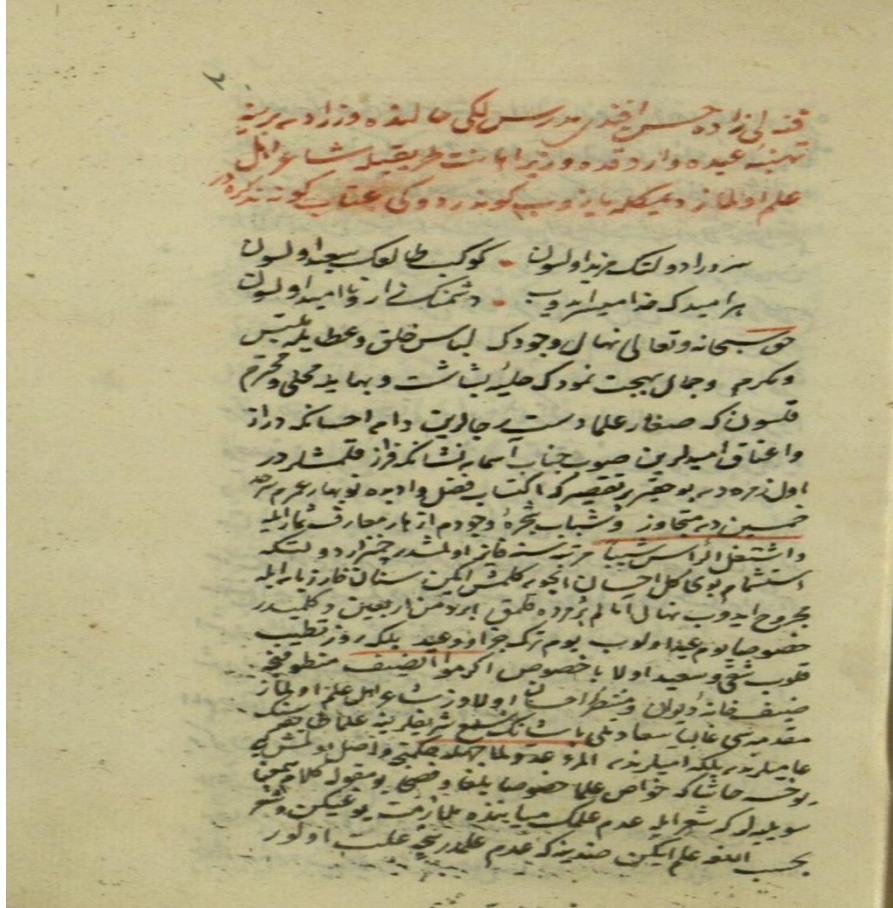 قنه‌لی زاده حسن افندی مدرسلکی حالنده وزرادن برینه
تهنیهٔ عیده واردقده وزیر اهانت طریقیله شاعر اهل
علم اولماز دیمکله یازوب کوندردوکی عتاب کونه تذکره در
سرورا دولتک مزید اولسون كوكب طالعك سعيد اولسون
هر امیدک خدا میسر ایدوب دشمنک نا امید اولسون
حق سبحانه وتعالی نهال وجودک لباس خلق وعطا یله ملتبس
ومکرم وجمال بهجت نمودک حلیهٔ بشاشت وبها یله محلی ومحترم
قلسون که صغار علما دست رجالرین دامن احسانکه دراز
واعناق امیدلرین صوب جناب آسمان نشانکه فراز قلمشلردر
اول زمره دن بو حقیر پر تقصیر که اکتساب فضل وادبده نوبهار عمرم سرحد
خمسین دن متجاوز وشباب شجرهٔ وجودم ازهار معارف ثمار ایله
واشتعل الرأس شیبا مرتبه سنه فائز اولمشدر چمنزار دولتکه
استشمام بوی کل احسان ایچون کلمش ایکن سنان خار زبان ایله
مجروح ایدوب نهال امالم پژمرده قلمق
خصوصا یوم عید اولوب یوم ترک جزا ووعید بلکه روز تطییب
قلوب شقی وسعید اولا با خصوص اکرموا الضیف منطوقنجه
ضیف خانهٔ دیوان ومنتظر احسان اولا وز شاعر اهل علم اولماز
مقدمه سی غالبا سعادتلی پاشانک سمع شریفلرینه علما
عامیلرندن بلکه امیلرندن المرء عدو لما جهله حکمنجه واصل اولمش
یوخسه حاشا که خواص علما خصوصا بلغا وفصحا بو مقوله کلام
سویلیه لر که شعر ایله عدم علمک میاننده ملازمت یوغیکن وشعر
بحسب اللغه علم ایکن ضدینه که عدم علمدر نیجه علت اولور